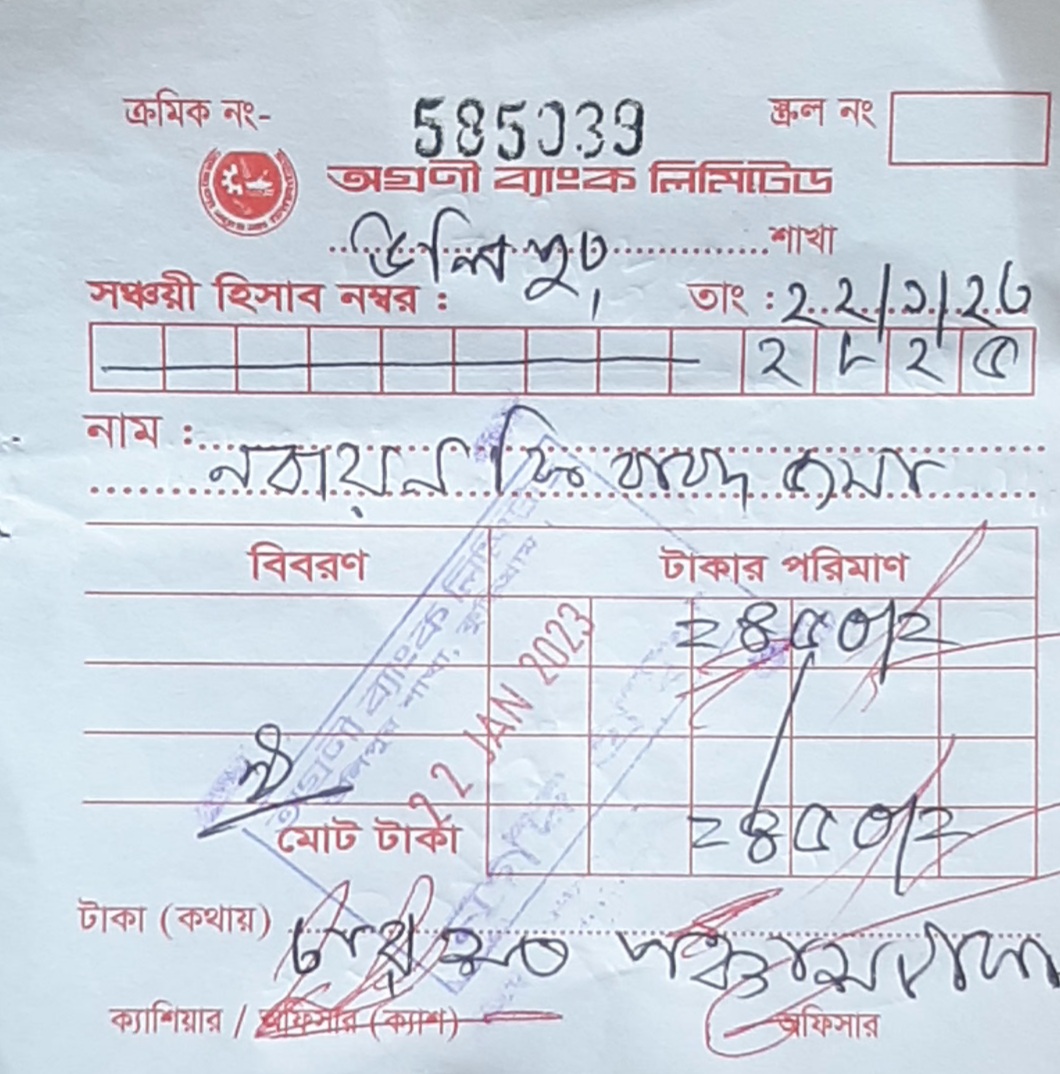 ক্রমিক নং- 585039 স্ক্রল নং
অগ্রণী ব্যাংক লিমিটেড
উলিপুর, শাখা
সঞ্চয়ী হিসাব নম্বর : তাং : ২২/১/২৩
২৮২৫
নাম :
বিবরণ টাকার পরিমাণ
২৪৫০/২
অগ্রণী ব্যাংক লিমিটেড
উলিপুর শাখা, কুড়িগ্রাম
22 JAN 2023
২৪৫০/২
মোট টাকা
টাকা (কথায়)
ক্যাশিয়ার / অফিসার (ক্যাশ) অফিসার